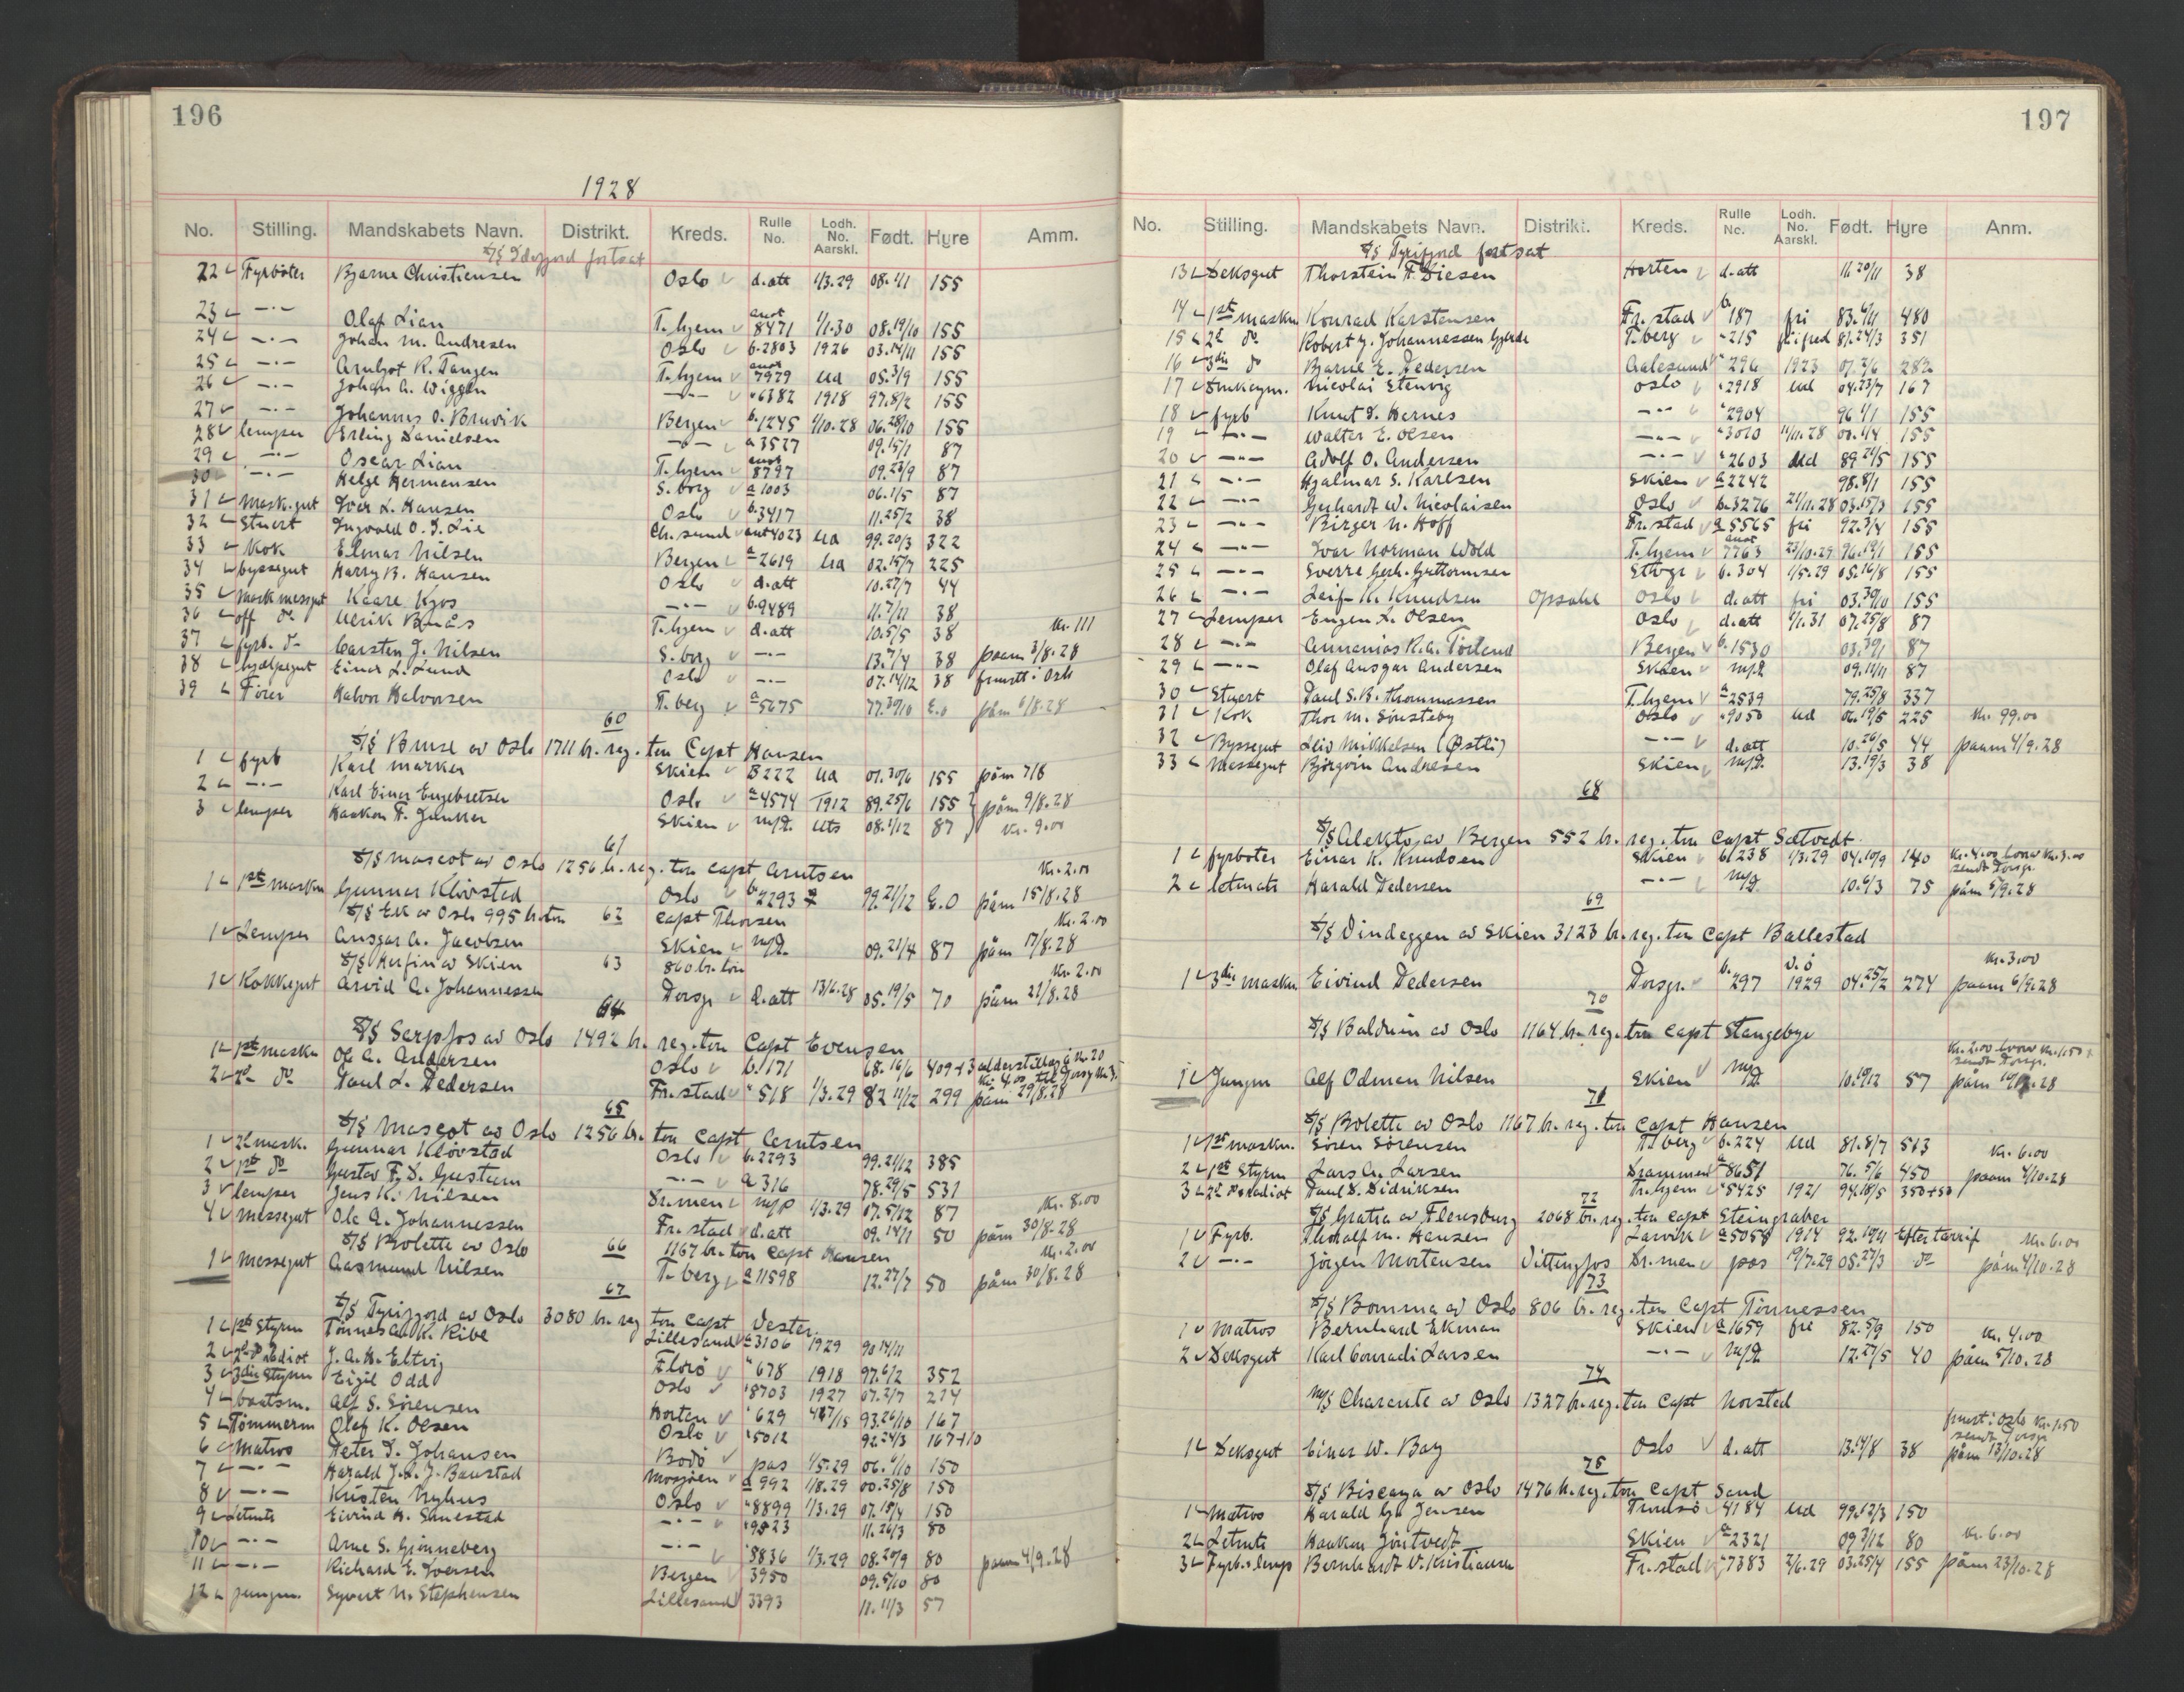 196
1928
No. Stilling. Mandskabets Navn. Distrikt. Kreds. Rulle No. Lodh. No. Aarskl. Født. Hyre Amm.
S/S Idefjord fortsat
22 Fyrböter Bjarne Christiensen Oslo d.att 1/3.29 08.1/1 155
23 —"— Olaf Lian T.hjem anot 8471 1/1.30 08.19/10 155
24 —"— Johan M. Andresen Oslo b.2803 1926 03.14/11 155
25 —"— Arnljot R. Tangen T.hjem anot 7979 Ud 05.3/9 155
26 —"— Johan A. Wiggen —"— "6382 1918 97.8/2 155
27 —"— Johannes O. Bruvik Bergen b.1245 1/10.28 06.28/10 155
28 lemper Erling Danielsen —"— a 3527 09.15/1 87
29 —"— Oscar Lian T.hjem anot 8797 09.23/9 87
30 —"— Helge Hermansen S.borg a 1003 06.1/5 87
31 Mask.gut Iver L. Hansen Oslo b.3417 11.25/2 38
32 Stuert Ingvald O. J. Lie Chr.sund anot 4023 Ud 99.20/3 322
33 Kok Elmar Nilsen Bergen a 2619 Ud 02.15/7 225
34 byssegut Harry B. Hansen Oslo d.att 10.27/7 44
35 Mask messegut Kaare Kjos —"— b.9489 11.7/11 38
36 off do Ulrik Braås T.hjem d.att 10.5/5 38 Kr. 111
37 fyrb. do Carsten J. Nilsen S.borg —"— 13.7/4 38 paam 3/8.28
38 hjælpegut Einar L. Lund Oslo —"— 07.14/12 38 frmstt i Oslo
39 Förer Halvor Halvorsen T.berg a 5675 77.30/10 E.o påm 6/8.28
60
S/S Bruse av Oslo 1711 br. reg. ton Capt Hansen
1 fyrb Karl Marker Skien B222 Ud 01.30/6 155 påm 7/8
2 —"— Karl Einar Engebretsen Oslo a 4574 1912 89.25/6 155 påm 9/8.28
3 lemper Haakon F. Junker Skien m/p. Uts 08.1/12 87 Kr. 9.00
61
S/S Mascot av Oslo 1256 br. reg. ton Capt Arntsen Kr. 2.00
1 1ste maskn Gunnar Klövstad Oslo b.2293 99.21/12 E.O påm 15/8.28
S/S Ek av Oslo 995 br.ton 62 Capt Thorsen Kr. 2.00
1 Lemper Ansgar A. Jacobsen Skien m/p. 09.21/4 87 påm 17/8.28
S/S Herfin av Skien 63 860 br. ton Kr. 2.00
1 Kokkegut Arvid A. Johannessen Porsgr d.att 13/6.28 05.19/5 70 påm 21/8.28
64
S/S Sarpfos av Oslo 1492 br. reg. ton Capt Evensen
1 1ste maskn Ole A. Andersen Oslo b.171 68.16/6 409+3 alderstillæg à Kr. 20
2 2d do Paul L. Pedersen Fr.stad "518 1/3.29 82 11/12 299 påm 29/8.28
65
S/S Mascot av Oslo 1256 br. ton Capt Arntsen
1 2d mask. Gunnar Klövstad Oslo b.2293 99.21/12 385
2 1ste do Gustav F. D. Gustam —"— a 316 78.29/5 531
3 lemper Jens K. Nilsen Dr.men m/p 1/3.29 07.5/12 87 Kr. 8.00
4 Messegut Ole A. Johannessen Fr.stad d.att 09.14/1 50 påm 30/8.28
S/S Bolette av Oslo 66 1167 br. ton Capt Hansen Kr. 2.00
1 Messegut Aasmund Nilsen T.berg a 11598 12.27/7 50 påm 30/8.28
67
S/S Tyrifjord av Oslo 3080 br. reg ton Capt Vester
1 1ste Styrm Tönnes K. Ribe Lillesand a 3106 1929 90 14/11
2 2d do radiot J. A. H. Eltvig Florö "678 1918 97.6/2 352
3 3die styrm Eigil Odd Oslo "8703 1927 07.2/7 274
4 baatsm. Alf S. Sörensen Horten "629 93.26/10 167
5 Tömmerm Olaf K. Olsen Oslo "5012 92.24/3 167+10
6 Matros Peter D. Johansen Bodö pas 1/5.29 06.1/10 150
7 —"— Harald J. L. J. Baustad Mosjöen a 992 1/8.29 00.25/8 150
8 —"— Kristen Nyhus Oslo "8899 1/3.29 07.18/4 150
9 Letmts Eivind H. Sanestad —"— "9823 11.26/3 80
10 —"— Arne S. Grönneberg —"— "5836 1/3.29 08.20/9 80 paam 4/9.28
11 —"— Richard E. Iversen Bergen 3950 09.5/10 80
12 jungm. Syvert N. Stephensen Lillesand 3393 11.11/3 57
197
No. Stilling. Mandskabets Navn. Distrikt. Kreds. Rulle No. Lodh. No. Aarskl. Født. Hyre Anm.
S/S Tyrifjord fortsat
13 Deksgut Thorstein F. Diesen Horten d.att 11.20/11 38
14 1ste maskn Konrad Karstensen Fr.stad b.187 fri 83.6/11 480
15 2d do Robert J. Johannessen Gjerde T.berg "215 81.24/3 351
16 3die do Bjarne E. Pedersen Aalesund "296 1923 07.2/6 282
17 Nicolai Stenvig Oslo "2918 Ud 04.23/7 167
18 fyrb Knut D. Hernes —"— "2904 96.1/1 155
19 —"— Walter E. Olsen —"— "3010 11/11.28 08.1/4 155
20 —"— Adolf O. Andersen —"— "2603 Ud 89.21/5 155
21 —"— Hjalmar S. Karlsen Skien a 2242 98.8/1 155
22 —"— Gerhardt W. Nicolaisen Oslo b.3276 21/11.28 03.15/3 155
23 —"— Birger N. Hoff Fr.stad a 5565 fri 92.3/4 155
24 —"— Ivar Norman Wold T.hjem anot 7763 23/10.29 96.19/1 155
25 —"— Sverre Gerh. Guttormsen Sthvgr b.304 1/5.29 05.16/8 155
26 —"— Leif K. Knudsen Opsahl Oslo d.att fri 03.30/10 155
27 Lemper Eugen L. Olsen Oslo d.att 1/1.31 07.25/8 87
28 —"— Annanias R. A. Törlend Bergen b.1530 03.30/1 87
29 —"— Olaf Ansgar Andersen Skien m/p. 09.11/11 87
30 Stuert Paul S. B. Thommassen T.hjem a 2539 79.25/8 337
31 Kok Thor M. Sönsteby Oslo "9050 Ud 06.19/5 225 Kr. 99.00
32 Byssegut Leiv Mikkelsen (Østli) —"— d.att 10.26/5 44 paam 4/9.28
33 Messegut Björgvin Andresen Skien m/p. 13.19/3 38
68
S/S Alekto av Bergen 552 br. reg. ton Capt Sætvedt
1 fyrböter Einar K. Knudsen Skien b.1238 1/3.29 04.10/9 140 Kr. 4.00 hvorav Kr. 3.00 sendt Porsgr.
2 letmats Harald Pedersen —"— m/p. 10.6/3 75 påm 5/9.28
69
S/S Vindeggen av Skien 3123 br. reg. ton Capt Ballestad
Kr. 3.00
1 3die maskn Eivind Pedersen Porsgr. b.297 v.ö 1929 04.25/2 274 paam 6/9.28
70
S/S Balduin av Oslo 1164 br. reg. ton Capt Stangebye
Kr. 2.00 hvorav Kr. 1.50 sendt Porsgr.
1 Jungm Alf Odman Nilsen Skien m/p. 10.19/12 57 påm
71
S/S Bolette av Oslo 1167 br. reg. ton Capt Hansen
1 1ste maskn. Sören Sörensen T.berg b.224 Ud 81.8/7 513 Kr. 6.00
2 1ste Styrm Lars A. Larsen Drammen a 8651 76.5/6 450 paam 4/10.28
3 2d do radiot Paul D. Didriksen T.hjem "5425 1921 94.18/5 350+50
72
S/S Gratia av Flensburg 2068 br. reg. ton Capt Steingraber
1 Fyrb. Thoralf M. Hansen Larvik a 5058 1914 92.19/11 Efter tarrif Kr. 6.00
2 —"— Jörgen Mortensen Vittingfos Dr.men pas 19/7.29 05.27/3 do påm 4/10.28
73
S/S Bomma av Oslo 806 br. reg. ton Capt Tönnessen
1 Matros Bernhard Ekman Skien a 1659 fri 82.5/9 150 Kr. 4.00
2 Deksgut Karl Conradi Larsen —"— m/p. 12.27/5 40 påm 5/10.28
74
M/S Charente av Oslo 1327 br. reg. ton Capt Norsted
frmst i Oslo Kr. 1.50 sendt Porsgr.
1 Deksgut Einar W. Bay Oslo d.att 13.14/8 38 påm 13/10.28
75
S/S Biscaya av Oslo 1476 br. reg. ton Capt Sand
1 Matros Harald Gu Jensen Tromsö 4184 Ud 99.12/3 150
2 Letmts Haakon Jöntvedt Skien a 2321 09 3/12 80 Kr. 6.00
3 Fyrb. s lemp Bernhardt V. Kristiansen Fr.stad "7383 2/6.29 03.25/4 155 påm 23/10.28